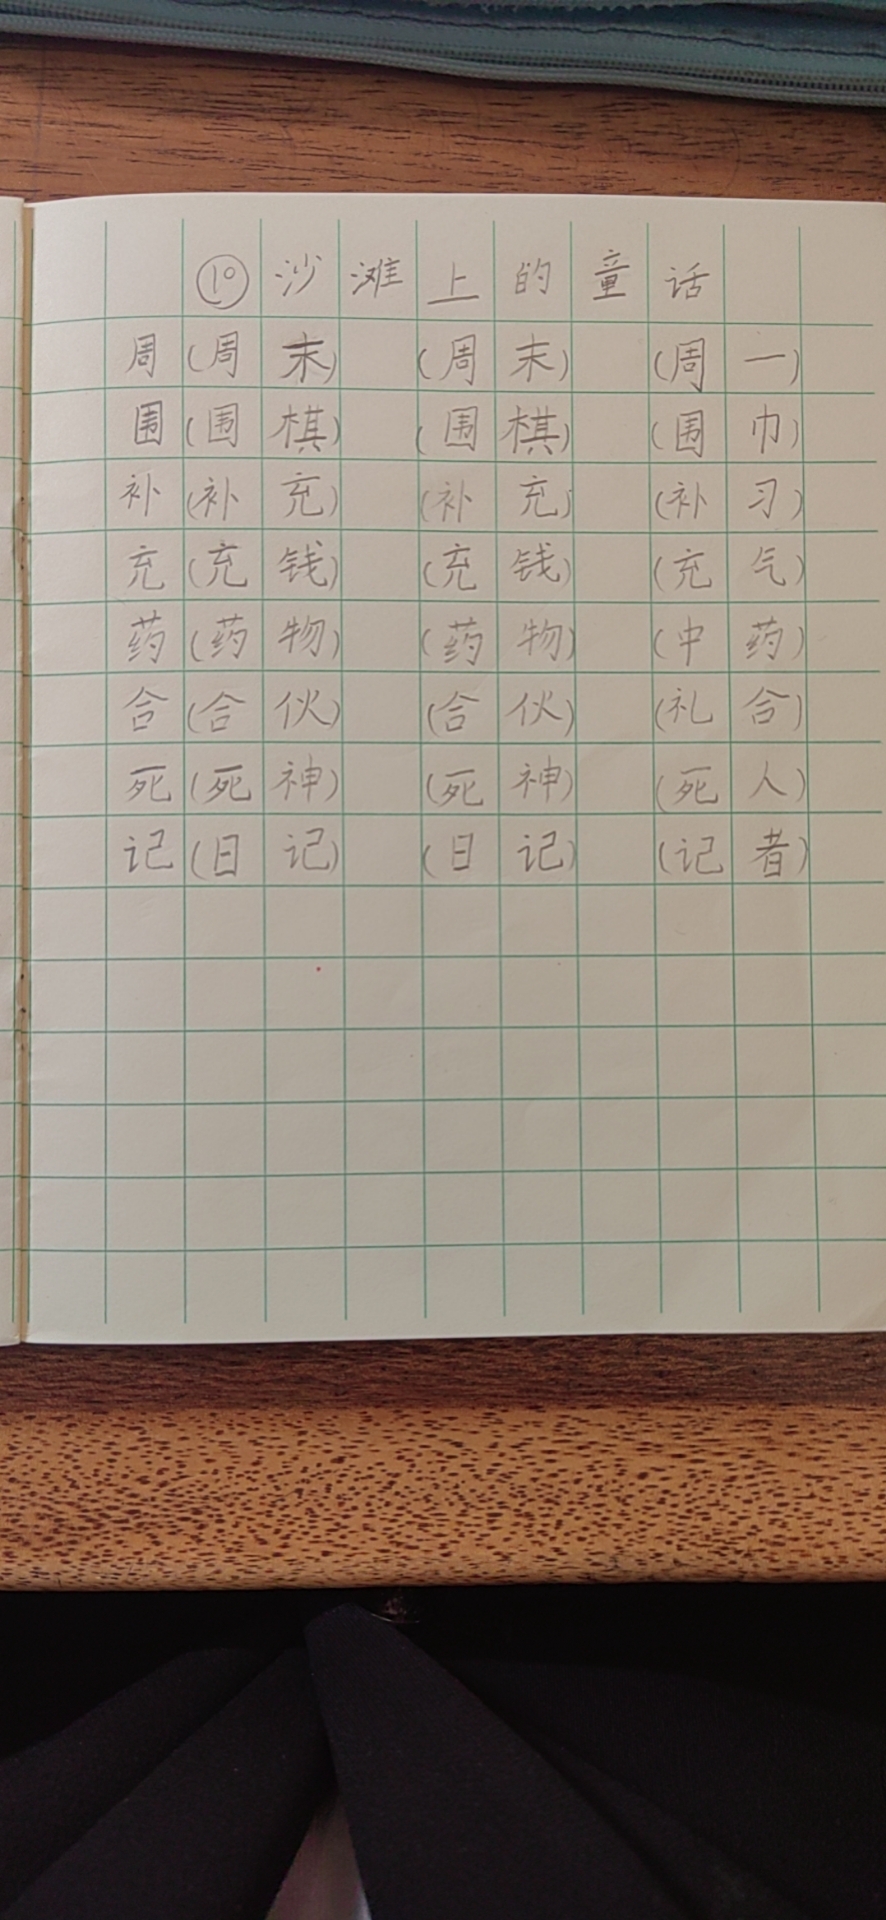 ⑩沙滩上的童话
周(周末) (周末) (周一)
围(围棋) (围棋) (围巾)
补(补充) (补充) (补习)
充(充钱) (充钱) (充气)
药(药物) (药物) (中药)
合(合伙) (合伙) (礼合)
死(死神) (死神) (死人)
记(日记) (日记) (记者)